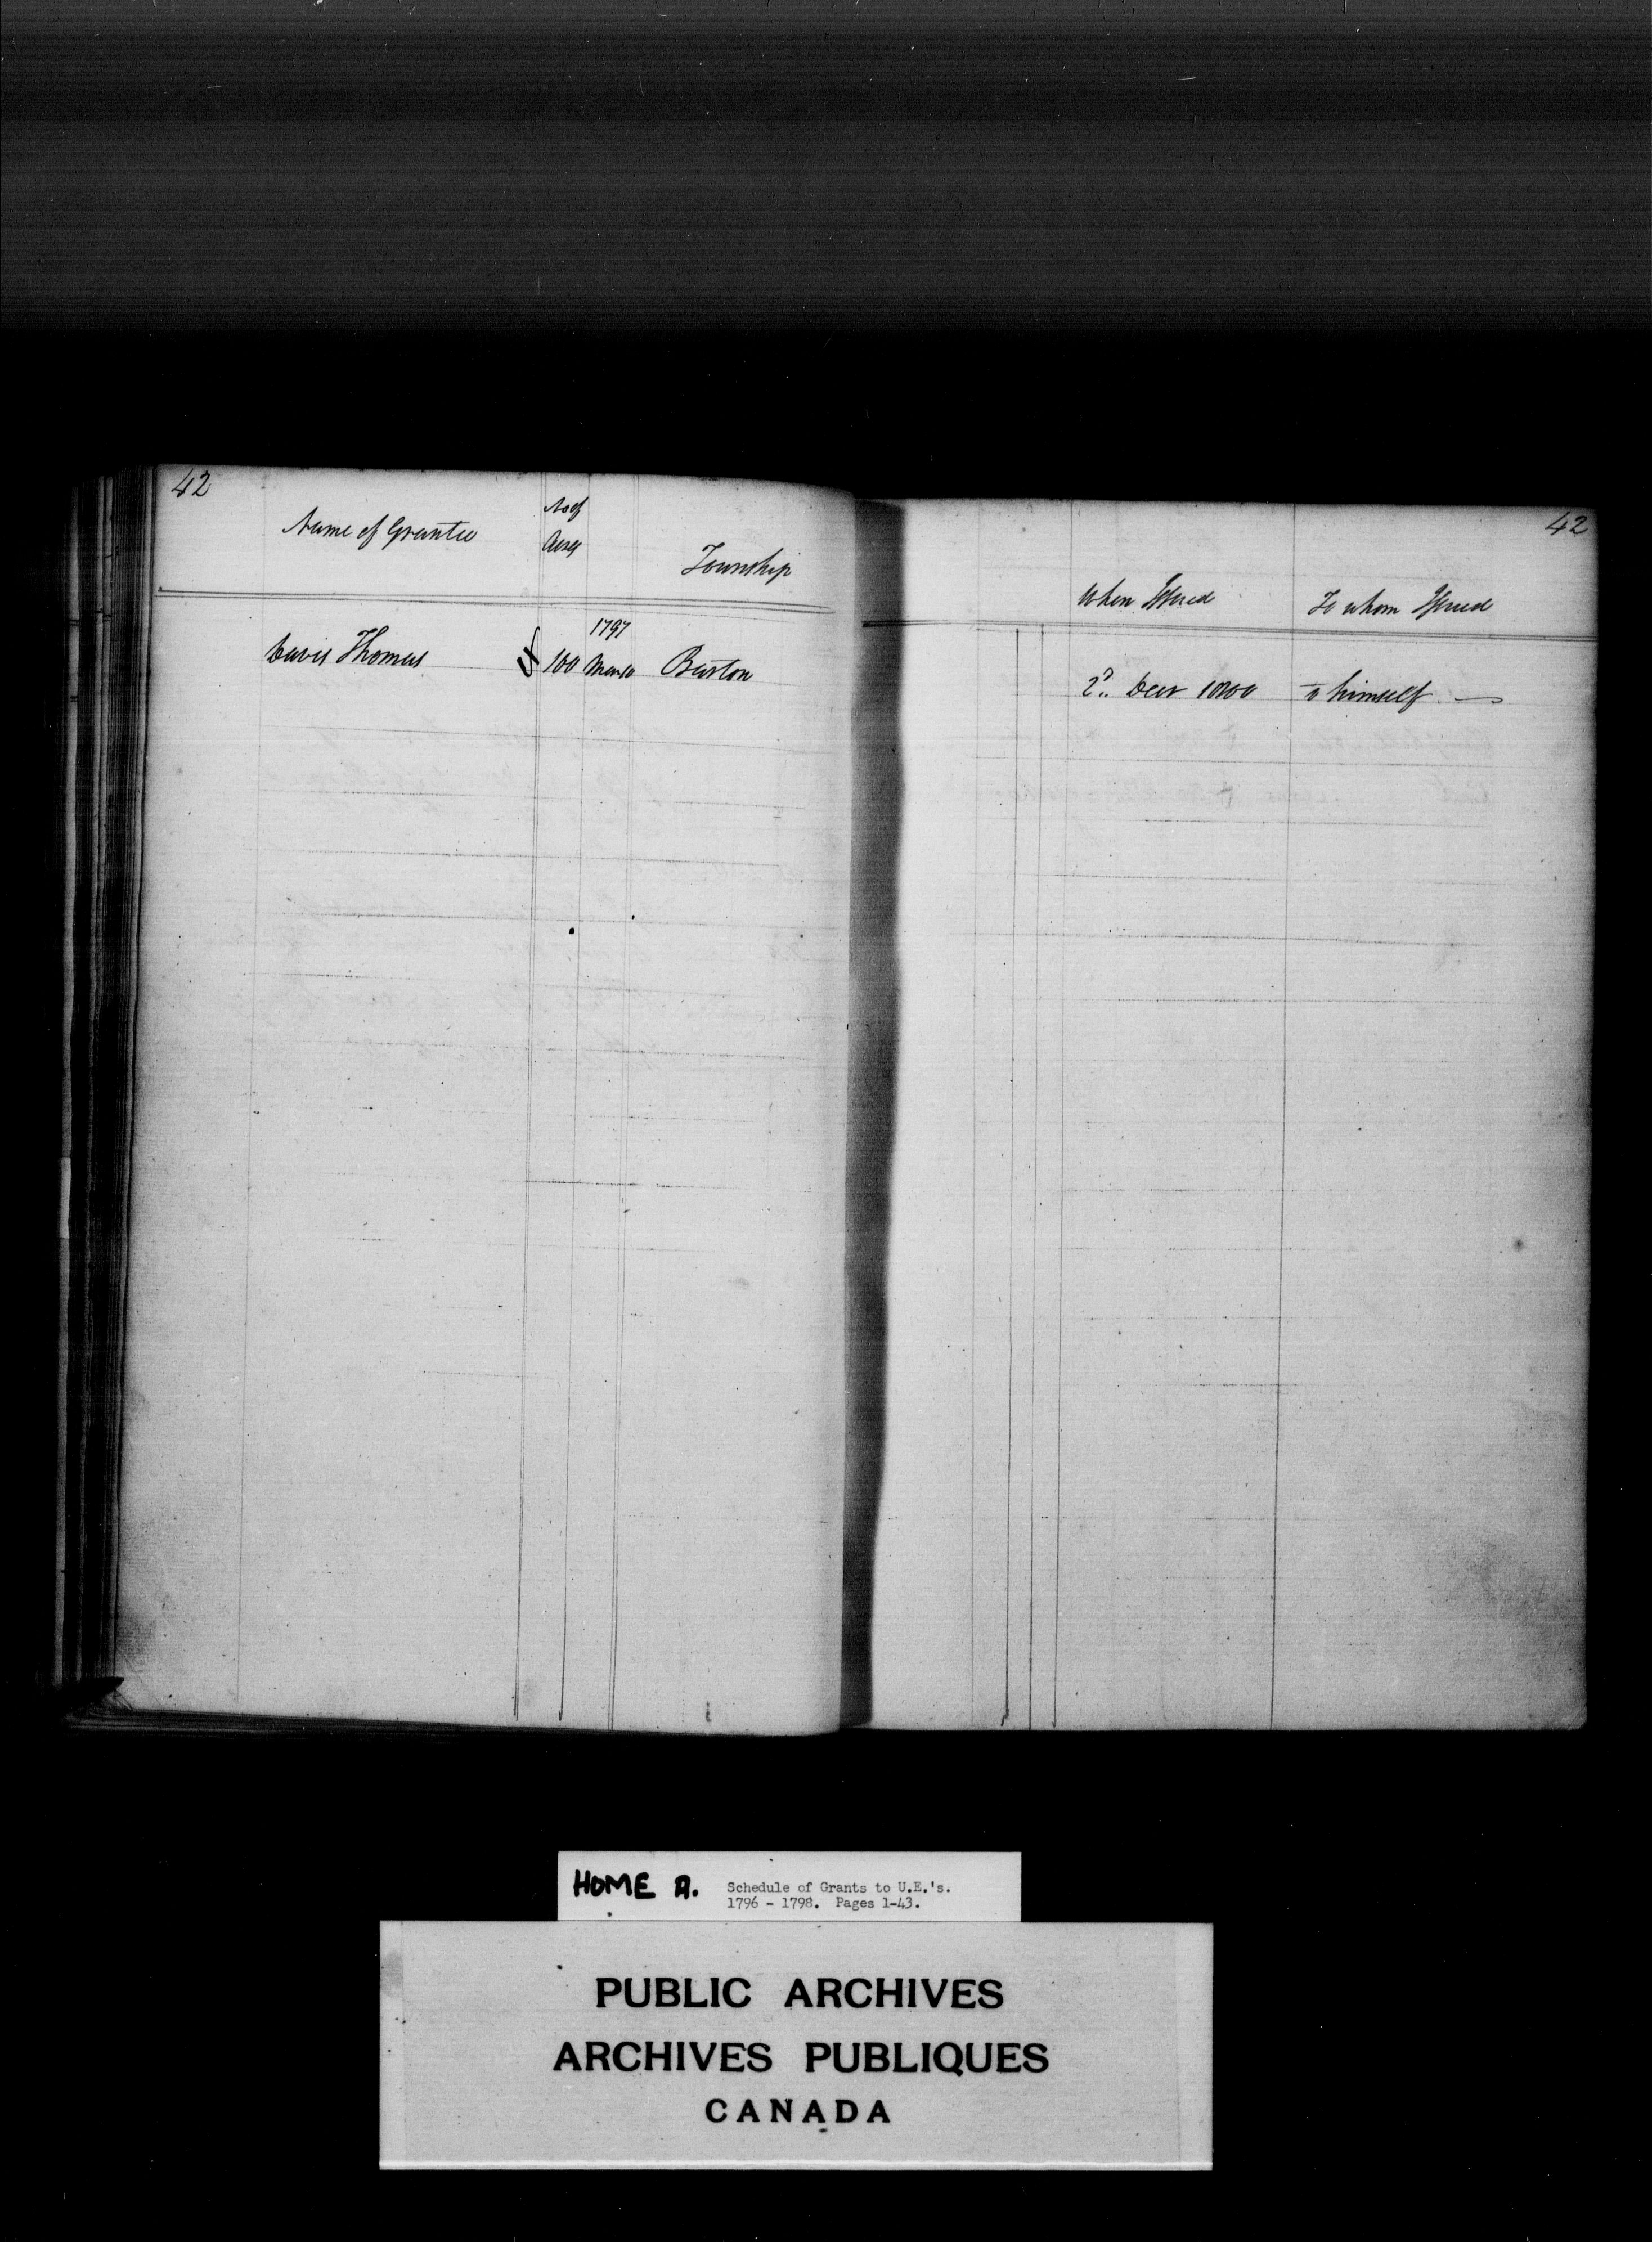 42
Name of Grantee
No of
Acres
Township
1797
Davis Thomas 100 Barton
42
When Issued
To whom Issued
2d Decr 1800 to himself
HOME A.
Schedule of Grants to U.E.'s.
1796 - 1798. Pages 1-43.
PUBLIC ARCHIVES
ARCHIVES PUBLIQUES
CANADA